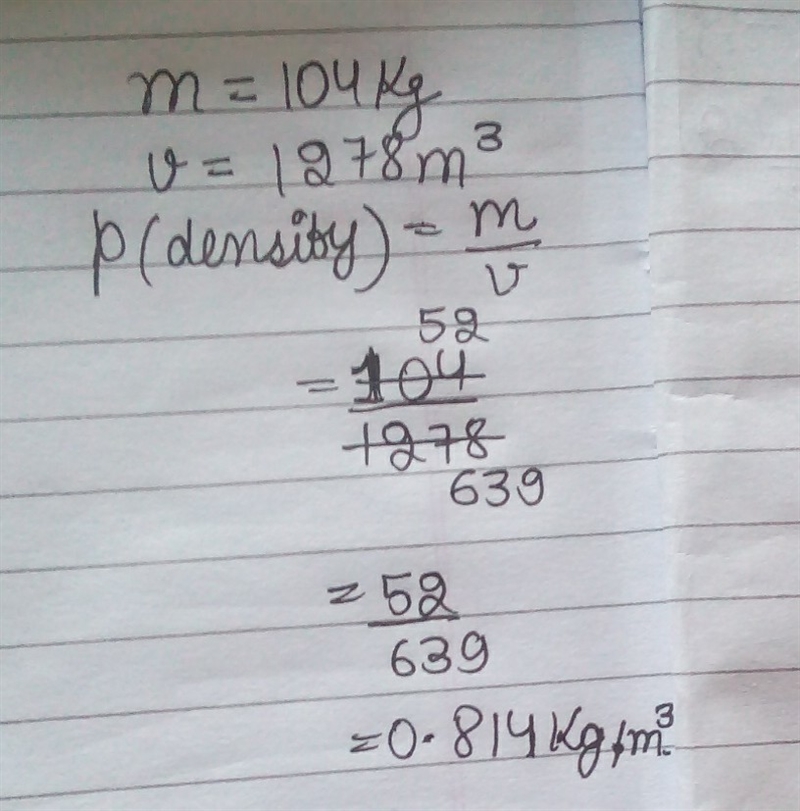 m = 104 Kg
v = 1278 m³
p (density) = m/v
52
= 104/1278
639
= 52/639
= 0.814 Kg/m³